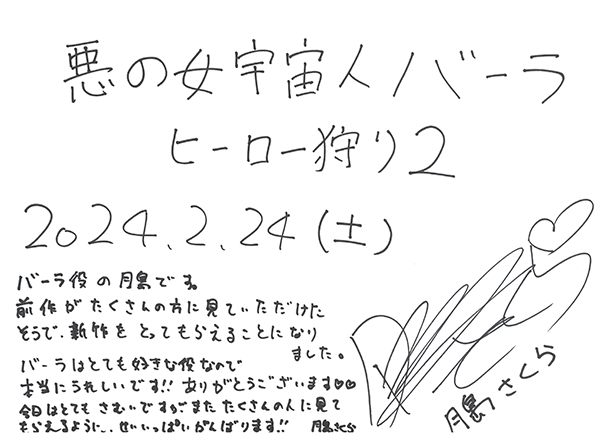 悪の女宇宙人バーラ
ヒーロー狩り2
2024.2.24(土)
バーラ役の月島です。
前作がたくさんの方に見ていただけた
そうで、新作をとってもらえることになり
ました。
バーラはとても好きな役なので
本当にうれしいです!! ありがとうございます♡♡
今日はとてもさむいですがまたたくさんの人に見て
もらえるように、せいいっぱいがんばります!! 月島さくら
月島さくら